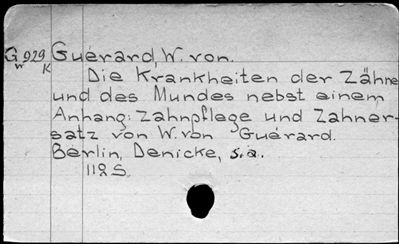 G 929 Guérard, W. von.
w K
Die Krankheiten der Zähne
und des Mundes nebst einem
Anhang: Zahnpflege und Zahner-
satz von W. von Guérard.
Berlin, Denicke, s.a.
112 S.